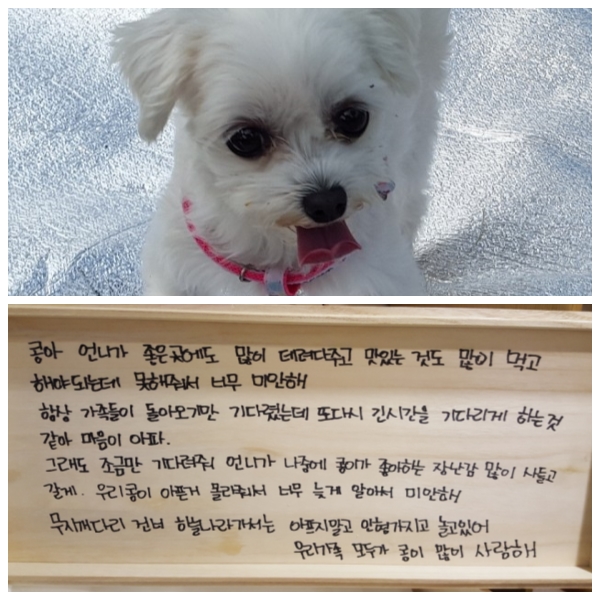 콩아 언니가 좋은곳에도 많이 데려다주고 맛있는 것도 많이 먹고
해야되는데 못해줘서 너무 미안해
항상 가족들이 돌아오기만 기다렸는데 또다시 긴시간을 기다리게 하는것
같아 마음이 아파.
그래도 조금만 기다려줘 언니가 나중에 콩이가 좋아하는 장난감 많이 사들고
갈게. 우리콩이 아픈거 몰라줘서 너무 늦게 알아서 미안해
무지개다리 건너 하늘나라가서는 아프지말고 인형가지고 놀고있어
우리가족 모두가 콩이 많이 사랑해